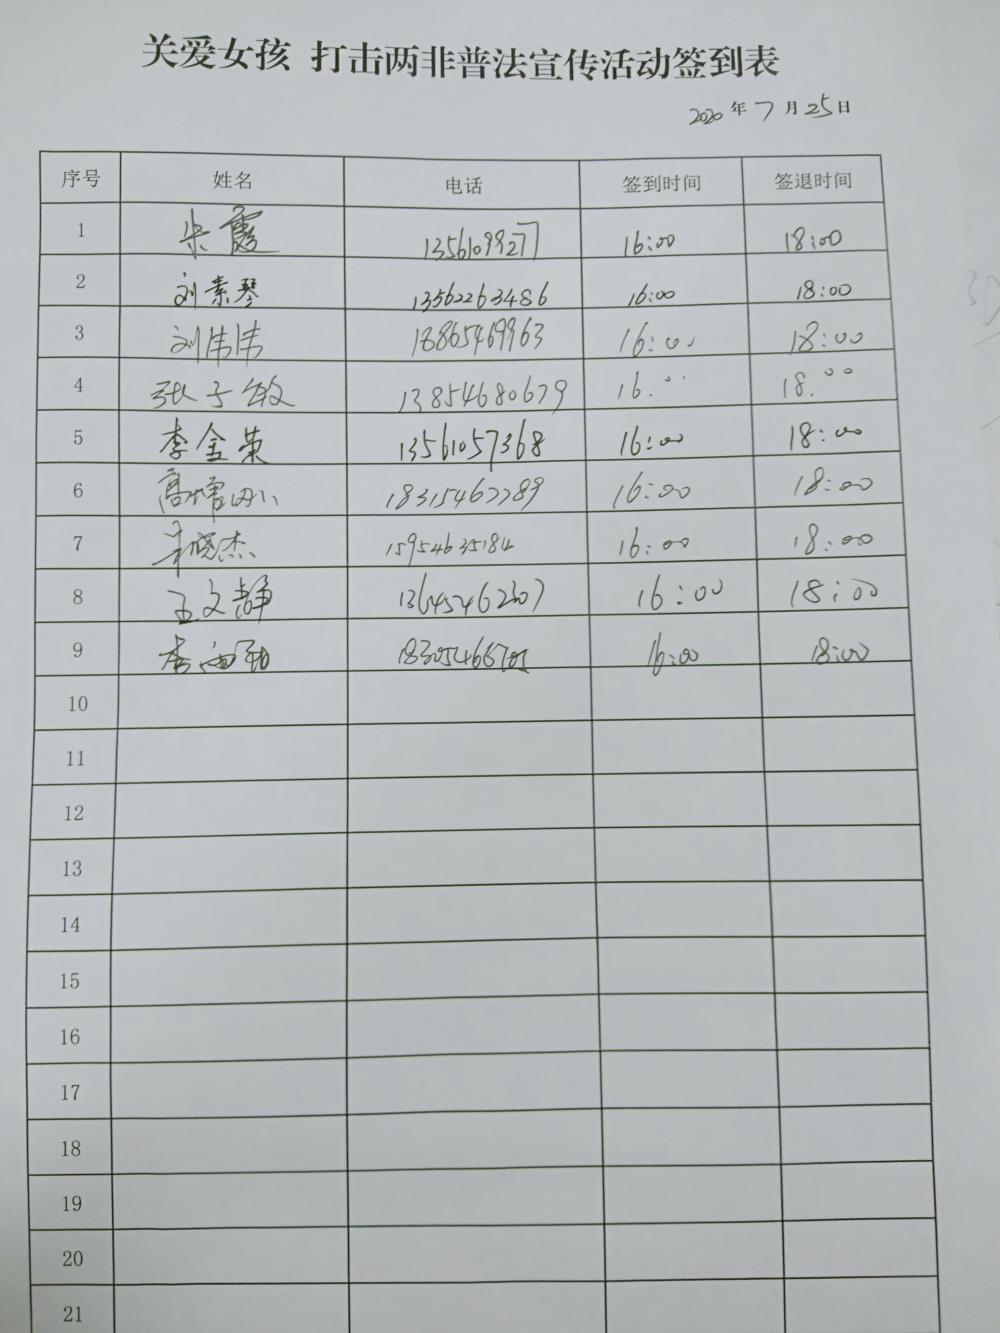 关爱女孩 打击两非普法宣传活动签到表
2020年7月25日
序号 姓名 电话 签到时间 签退时间
1 朱霞 13561099277 16:00 18:00
2 刘素琴 13562263486 16:00 18:00
3 刘伟伟 18865469963 16:00 18:00
4 张子敏 13854680679 16:00 18:00
5 李金荣 13561057368 16:00 18:00
6 18315462289 16:00 18:00
7 15954635184 16:00 18:00
8 王文静 13645462307 16:00 18:00
9 16:00 18:00
10
11
12
13
14
15
16
17
18
19
20
21